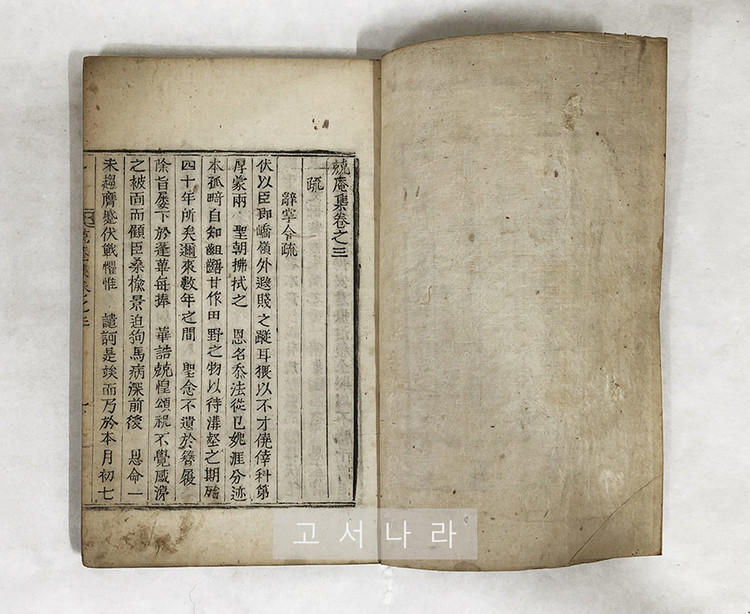 兢庵集卷之三
疏
辭掌令疏
伏以臣卽嶠嶺外遐賤之蹤耳猥以不才僥倖科第
厚蒙兩 聖朝拂拭之 恩名忝法從已娩涯分迹
本孤畸自知齟齬甘作田野之物以待溝壑之期
四十年所矣邇來數年之間 聖念不遺於簪履
除旨屢下於蓬蓽每捧 華誥兢惶頌祝不覺感涕
之被面而顧臣桑楡景迫狗馬病深前後 恩命一
未趨膺蹙伏戰懼惟 譴訶是竢而乃於本月初七
兢庵集卷之三
고서나라